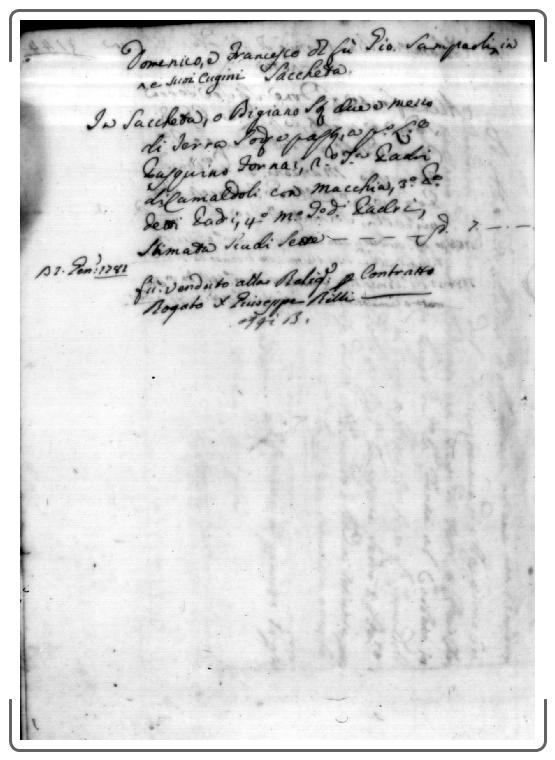 Domenico, e Francesco del fù Gio. Sampaoli, in
ne suoi Cugini Saccheta.
In Saccheta, o Bigiano due e mezzo
di Terra Sod. e past., a p.º
Gasquino Tornai, 2.º Padri
di Camaldoli con macchia, 3.º
detti Padi, 4.º m.º Padri,
Stimata Scudi Sette — — — — 7 — . —
B 7. Gen.º 1781
fù venduto alla Relig.e p Contratto
Rogato Giuseppe Rilli
oggi B.